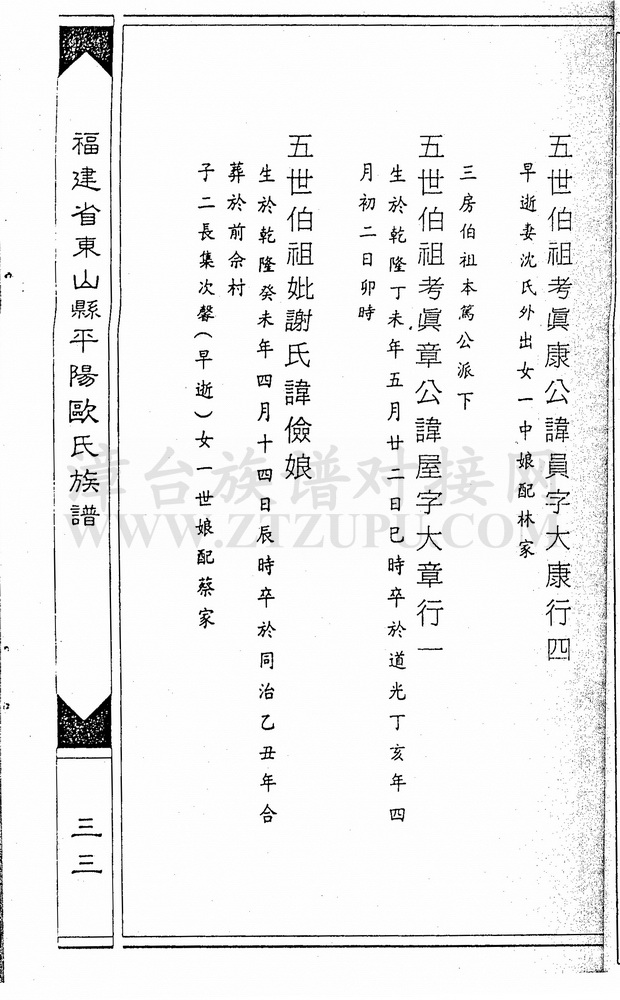 五世伯祖考眞康公諱員字大康行四
早逝妻沈氏外出女一中娘配林家
三房伯祖本篤公派下
五世伯祖考眞章公諱屋字大章行一
生於乾隆丁未年五月廿二日巳時卒於道光丁亥年四
月初二日卯時
五世伯祖妣謝氏諱儉娘
生於乾隆癸未年四月十四日辰時卒於同治乙丑年合
葬於前佘村
子二長集次馨(早逝)女一世娘配蔡家
福建省東山縣平陽歐氏族譜
三三
漳台族谱对接网
WWW.ZTZUPU.COM